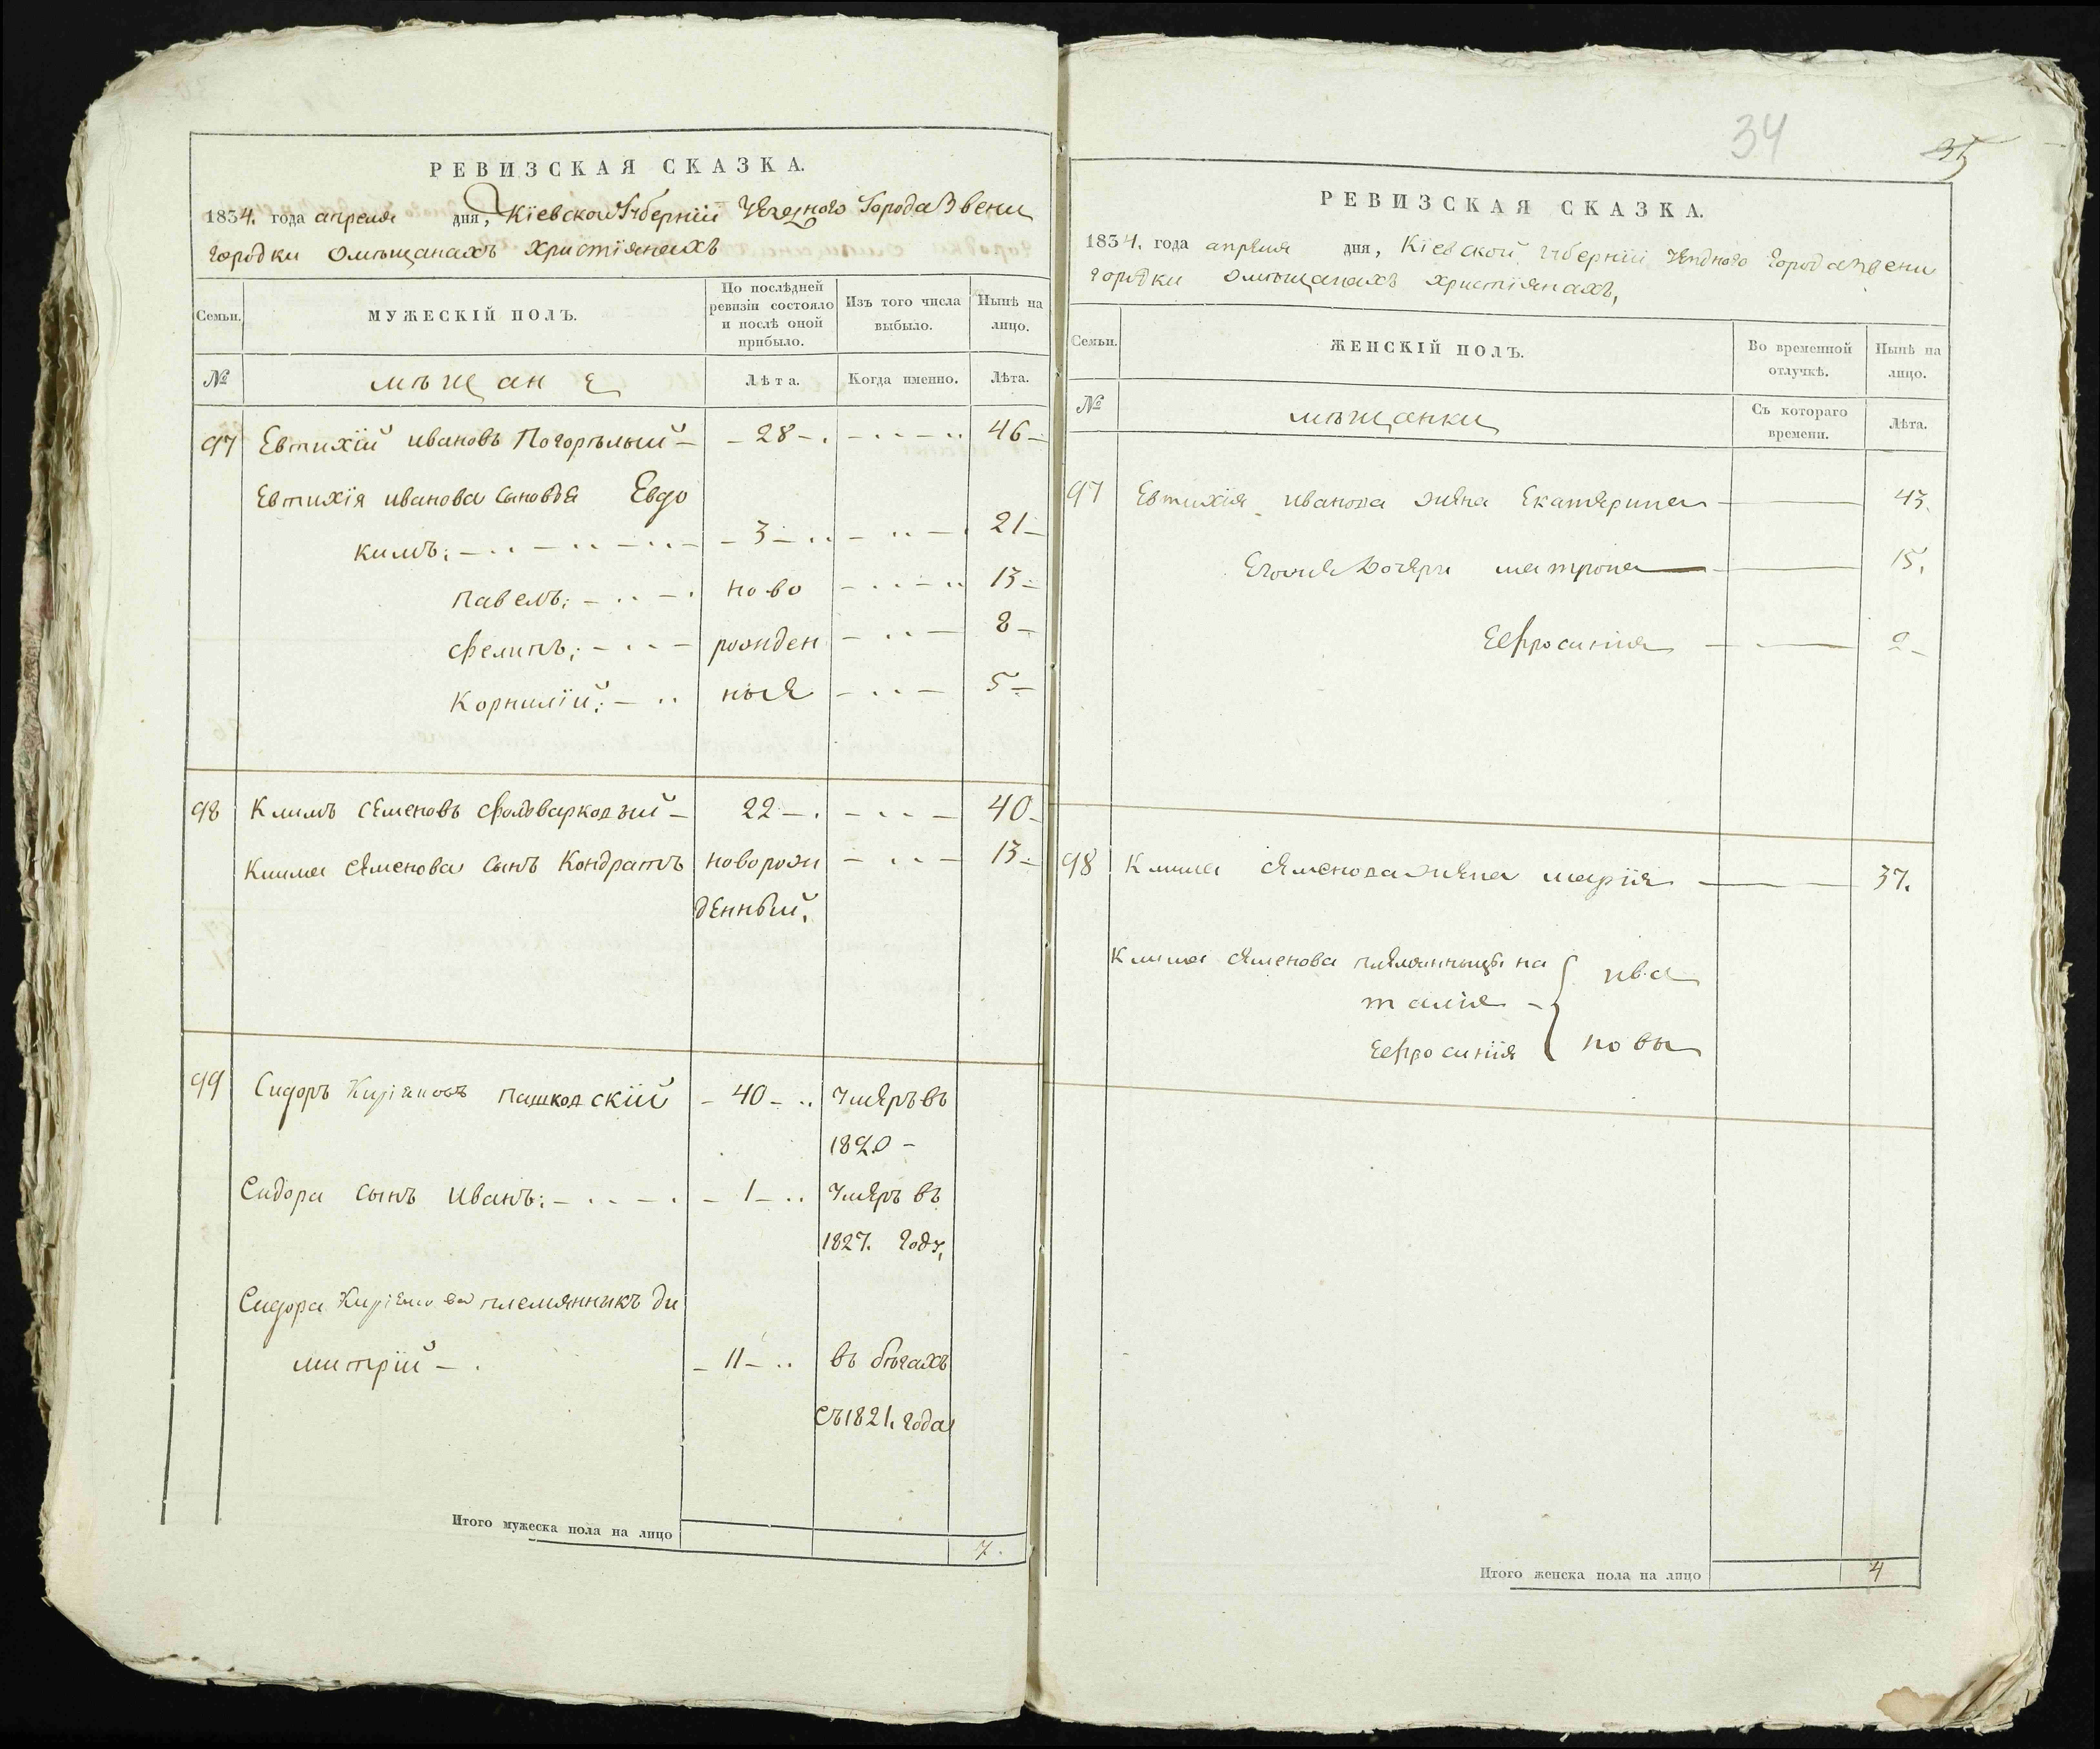 РЕВИЗСКАЯ СКАЗКА.
1834. года апреля дня, Кіевской Губерніи Уезднаго Города Звени
городки омѣщанахъ христіянахъ
Семьи.
МУЖЕСКІЙ ПОЛЪ.
По послѣдней ревизіи состояло и послѣ оной прибыло.
Изъ того числа выбыло.
Нынѣ на лицо.
№
мѣщане
Лѣта.
Когда именно.
Лѣта.
97 Евтихій ивановъ Погорѣлый – – 28 – . 46 –
Евтихія иванова сыновья Евдо
кимъ: – 3 – 21 –
павелъ: ново 13 –
Филипъ: рожден 8 –
Корнилій: ныя 5 –
98 Климъ семеновъ Фольварковый – 22 – . 40 –
Клима семенова сынъ Кондратъ новорож 13 –
денный.
99 Сидоръ пашковскій – 40 – .. умеръ въ
1820 –
Сидора сынъ иванъ: – 1 – .. умеръ въ
1827. году,
Сидора племянникъ ди
митрій – . – 11 – .. въ бѣгахъ
съ 1821. года
Итого мужеска пола на лицо
7.
34
35
РЕВИЗСКАЯ СКАЗКА.
1834. года апреля дня, Кіевской губерніи уездного города Звени
городки омѣщанахъ христіянахъ,
Семьи.
ЖЕНСКІЙ ПОЛЪ.
Во временной отлучкѣ.
Нынѣ на лицо.
№
мѣщанки
Съ котораго времени.
Лѣта.
97 Евтихія иванова жена Екатерина 43.
Егоже дочери матрона 15.
Ефросинія 2 –
98 Клима семенова жена марія 37.
Клима семенова племянницы на { ива
талія –
Ефросинія новы
Итого женска пола на лицо
4